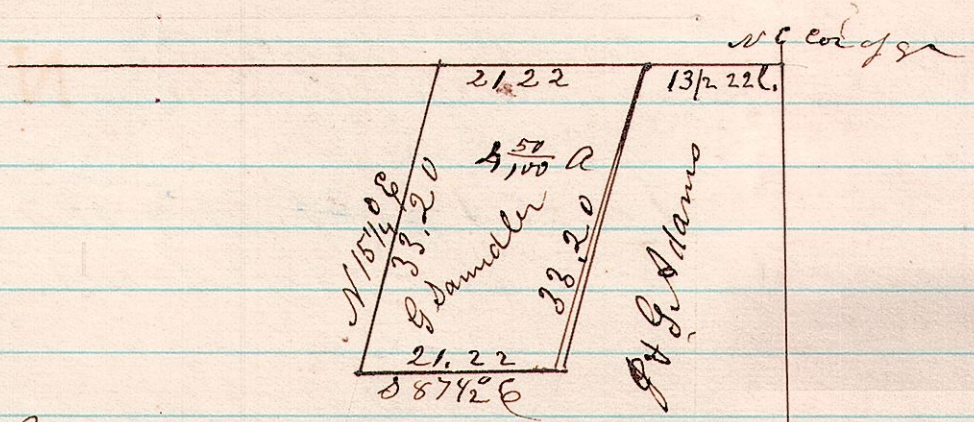 N E Cor of qr
21.22
13/2 22 l.
4 50/100 A
N 15 1/4° E
33.20
G Sawdler
33.20
J & G Adams
21.22
S 87 1/2° E